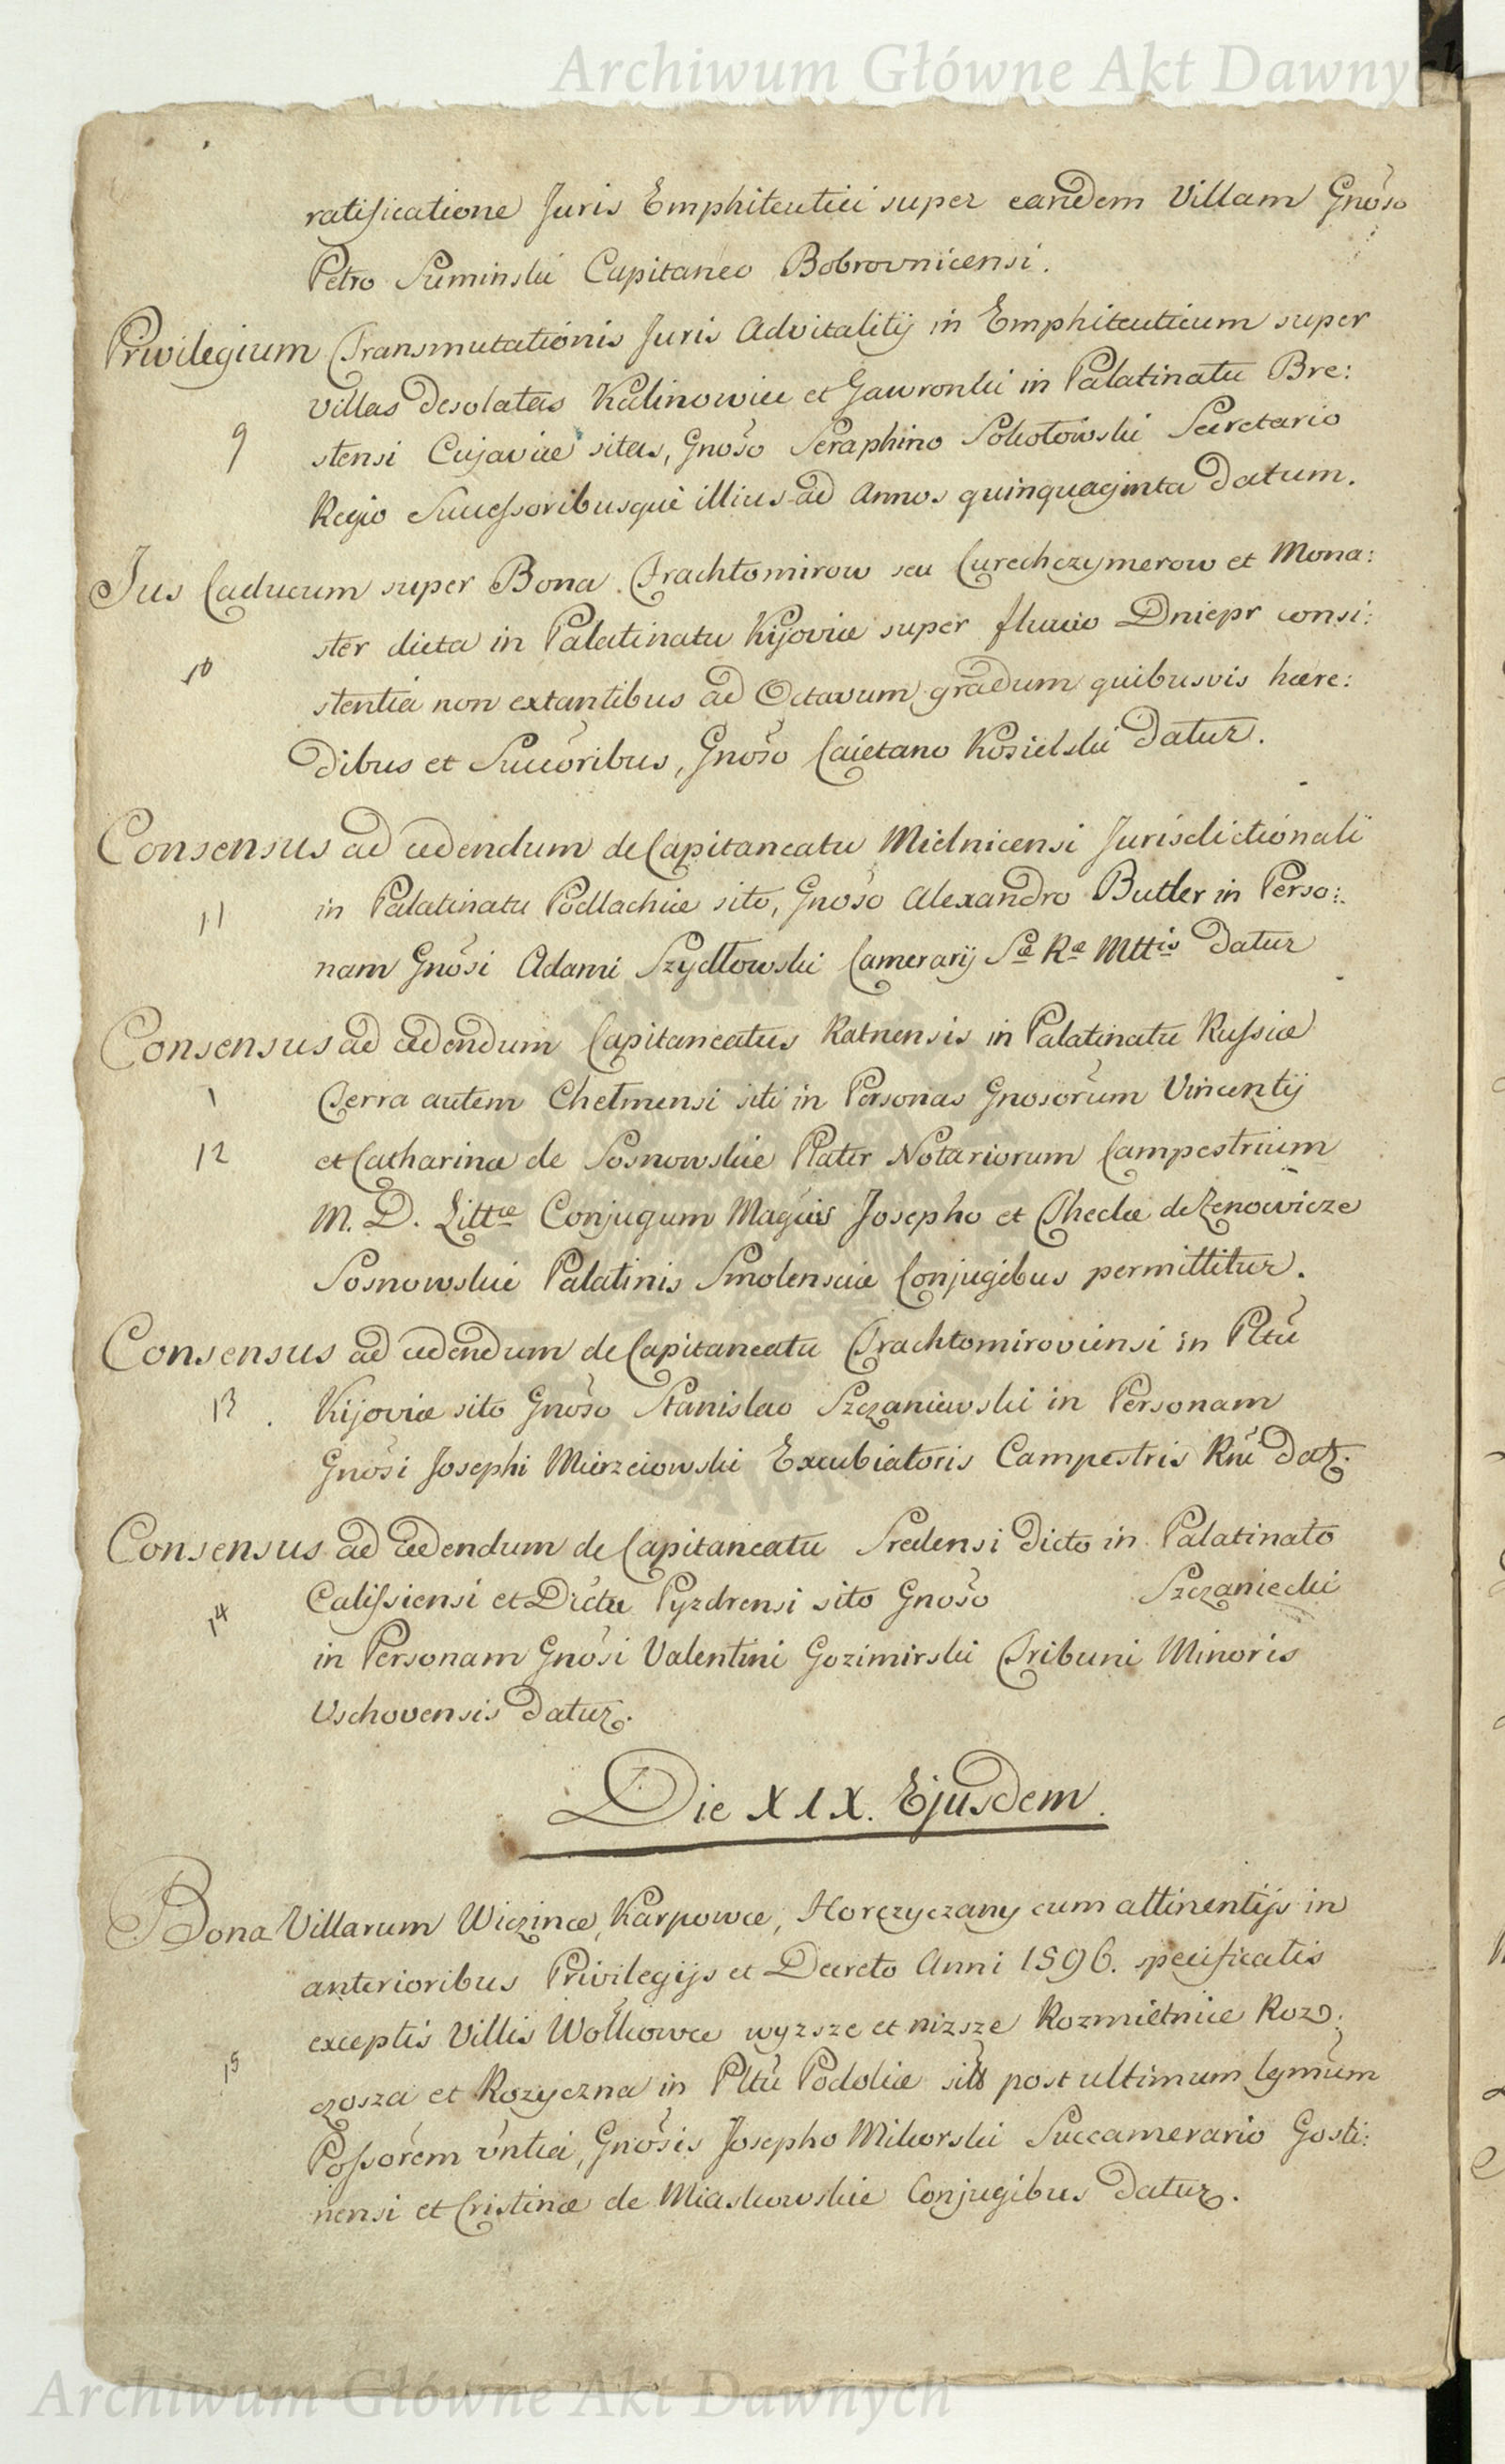 Archiwum Główne Akt Dawnych
ratificatione Juris Emphiteutici super eandem Villam Gnõso
Petro Suminski Capitaneo Bobrovnicensi.
Privilegium Transmutationis Juris Advitalitij in Emphiteuticum super
Villas desolatas Kalinowice et Gawronki in Palatinatu Bre:
9 stensi Cujaviæ sitas, Gnõso Seraphino Sokołowski Secretario
Regio Successoribusque illius ad Annos quinquaginta datum.
Jus Caducum super Bona Trachtomirow seu Curechczymerow et Mona:
ster dicta in Palatinatu Kijoviæ super fluvio Dniepr consi:
10 stentia non extantibus ad Octavum gradum quibusvis hære:
dibus et Succõribus, Gnõso Caietano Kosielski datur.
Consensus ad cedendum de Capitaneatu Mielnicensi Jurisdictionali
11 in Palatinatu Podlachiæ sito, Gnõso Alexandro Butler in Perso:
nam Gnõsi Adami Szydłowski Camerarij Sæ Ræ Mttis datur
Consensus ad cedendum Capitaneatus Ratnensis in Palatinatu Russiæ
Terra autem Chełmensi siti in Personas Gnosorum Vincentij
12 et Catharinæ de Sosnowskie Plater Notariorum Campestrium
M. D. Littæ Conjugum Magcis Josepho et Theclæ de Zenowicze
Sosnowskie Palatinis Smolensciæ Conjugibus permittitur.
Consensus ad cedendum de Capitaneatu Trachtomiroviensi in Pltũ
13. Kijoviæ sito Gnõso Stanislao Szczaniewski in Personam
Gnõsi Josephi Mierzeiowski Excubiatoris Campestris Rni datr.
Consensus ad cedendum de Capitaneatu Sredensi dicto in Palatinato
Calissiensi et Dictu Pyzdrensi sito Gnõso Szczaniecki
14 in Personam Gnõsi Valentini Gozimirski Tribuni Minoris
Vschovensis datur.
Die XIX. Ejusdem.
Bona Villarum Wiczince, Karpowce, Horczyczany cum attinentijs in
anterioribus Privilegijs et Decreto Anni 1596. specificatis
exceptis Villis Wołkowce wyzsze et nizsze Rozmietnice Rozd:
15 czosza et Rozyczna in Pltũ Podoliæ sitis post ultimum lgmũm
Possõrem vntia, Gnõsis Josepho Mikorski Succamerario Gosti:
nensi et Cristinæ de Miaskowskie Conjugibus datur.
Archiwum Główne Akt Dawnych